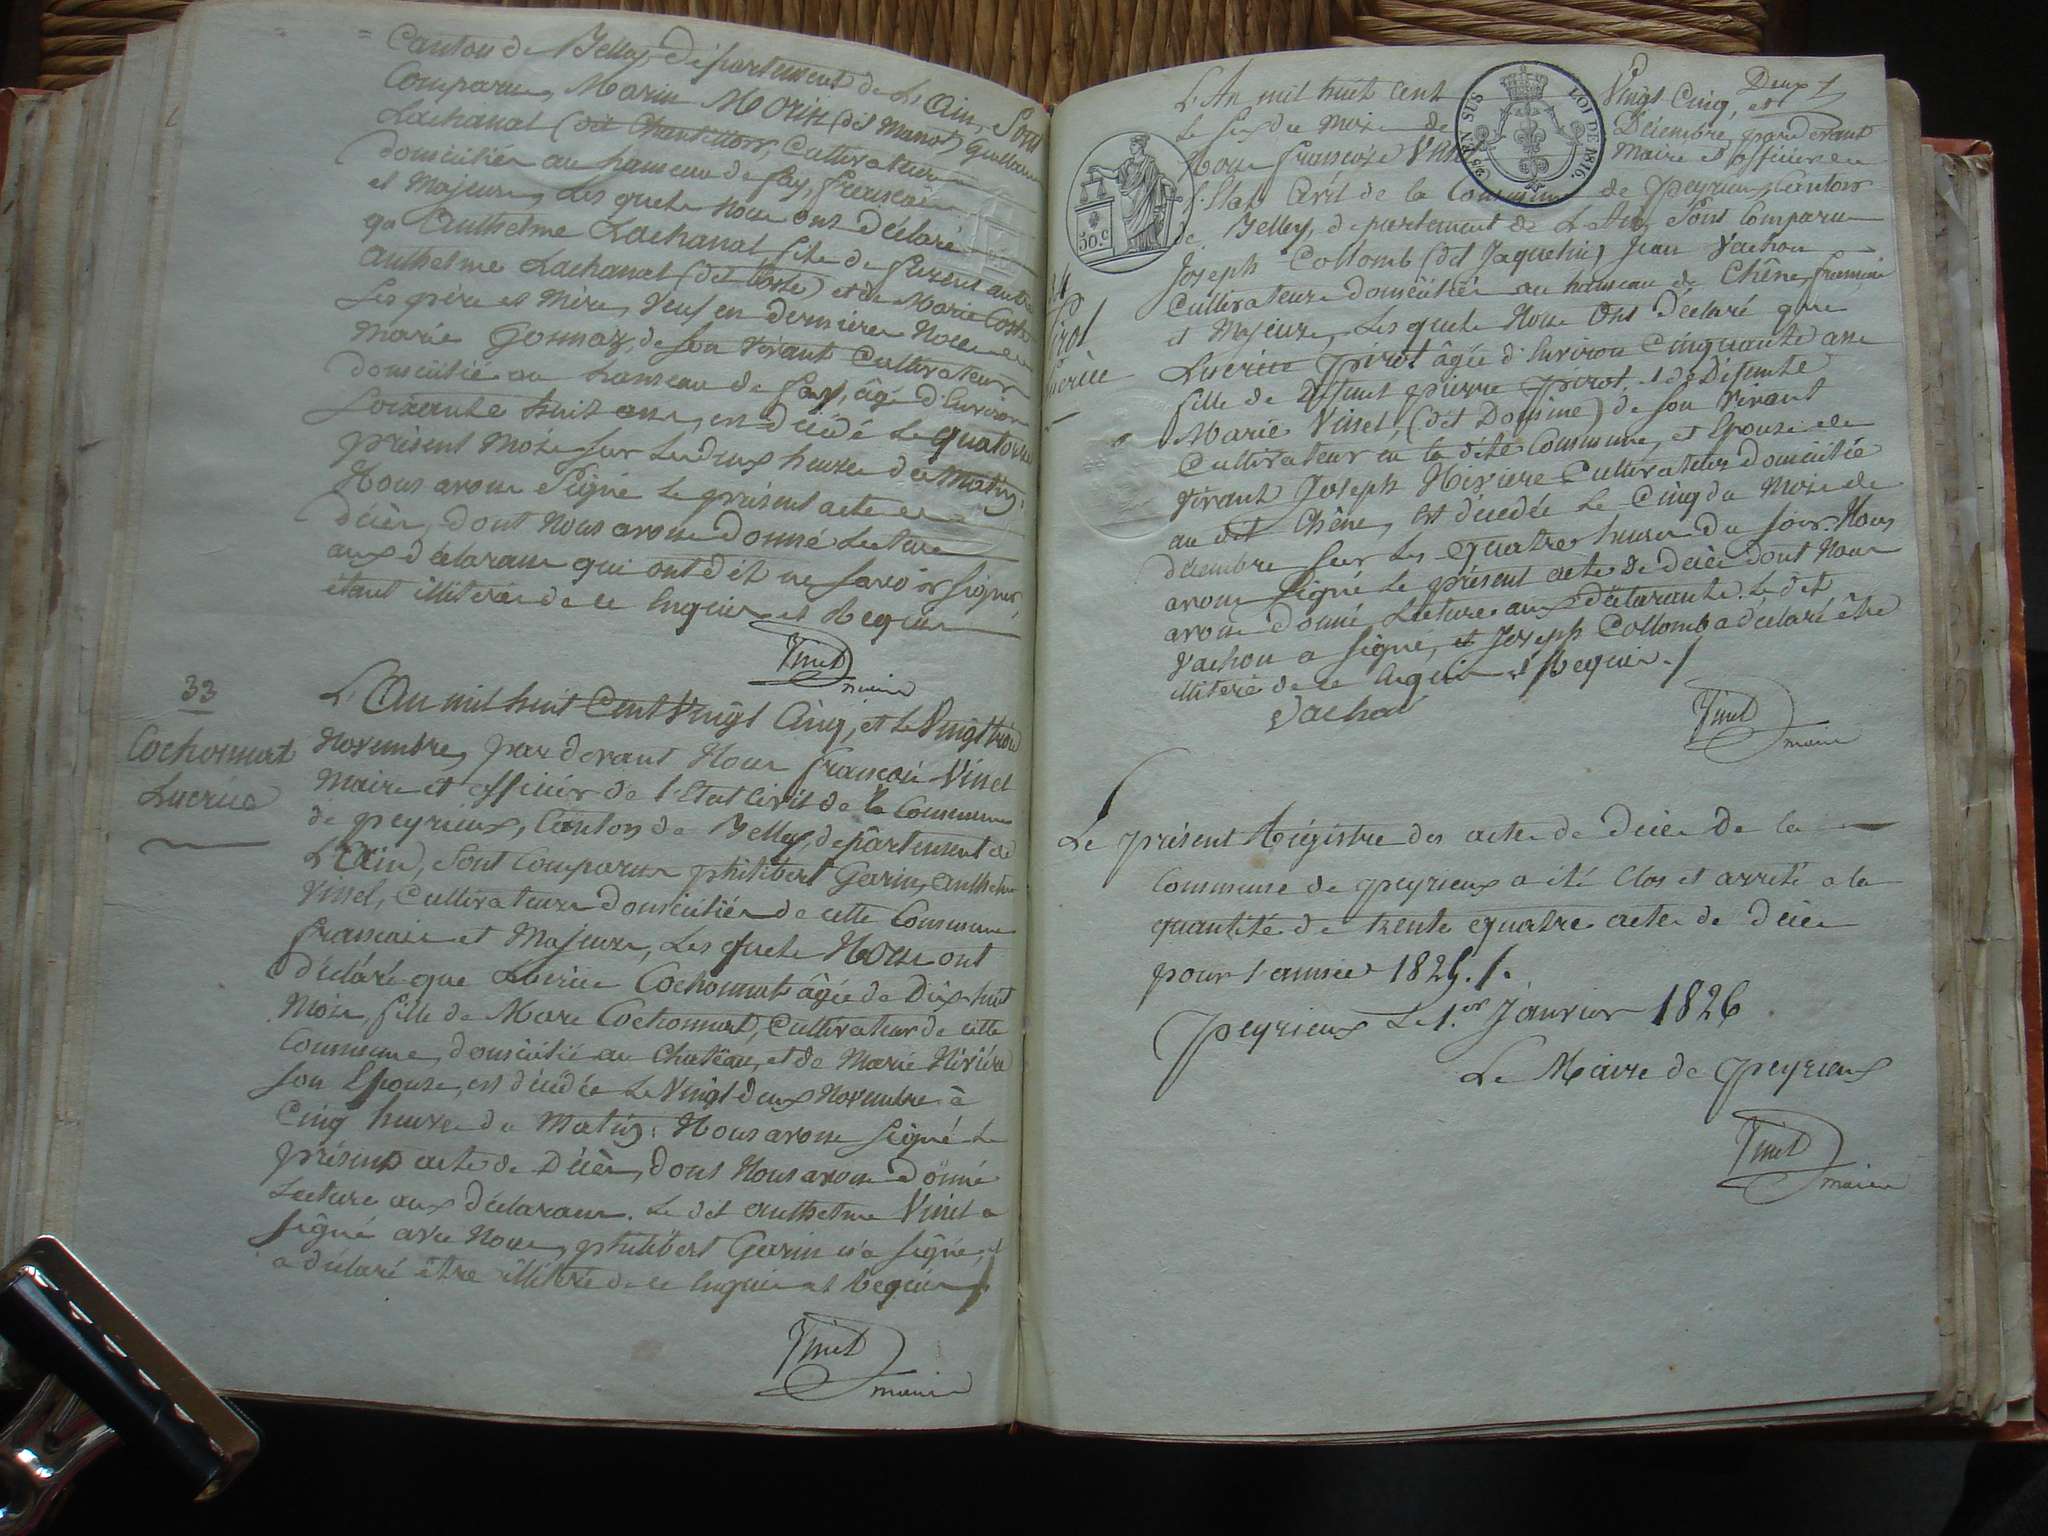 Canton de Belley, département de L'Ain, Sont
Comparus, Marin Morin (dit Manot) Guillaume
Lachanal (dit Chantillon, Cultivateurs
domiciliés au hameau de fay, français
et Majeurs, Les quels nous ont déclaré
qu'Anthelme Lachanal fils de furent autre
Anthelme Lachanal (dit Cost) et de Marie Coste
Ses père et Mère, Veuf en dernières Noces de
Marie Gonnaz, de son Vivant Cultivateur
domicilié au hameau de fay, âgé d'Environ
Soixante huit ans, est décédé le quatorze
présent Mois sur les deux heures du Matin;
Nous avons Signé le présent acte de
décès, dont Nous avons donné Lecture
aux déclarans qui ont dit ne savoir Signer,
étant illiterés de ce Enquis et Requis
Vinet
maire
33
Cochonnat
Lucrèce
L'An mil huit Cent Vingt Cinq, et le Vingt trois
Novembre, par devant Nous françois Vinet
Maire et officier de l'Etat Civil de la Commune
de peyrieux, Canton de Belley, département de
L'Ain, Sont Comparus philibert Garin, Anthelme
Vinet, Cultivateurs domiciliés de cette Commune
français et Majeurs, Les quels Nous ont
déclaré que Lucrèce Cochonnat âgée de Dix-huit
Mois, fille de Marc Cochonnat, Cultivateur de cette
Commune, domicilié au Château, et de Marie Rivière
son Epouse, est décédée Le Vingt deux Novembre à
Cinq heures du Matin; Nous avons signé Le
présent acte de Décès, dont Nous avons donné
Lecture aux déclarans. Le dit anthelme Vinet a
signé avec Nous, philibert Garin n'a signé, et
a déclaré être illitéré de ce Enquis et Requis
Vinet
maire
L'An mil huit Cent Vingt Cinq, Deux
et
Le six du Mois de Décembre, par devant
Nous françois Vinet Maire et officier de
l'Etat Civil de la Commune de peyrieux, Canton
de Belley, département de L'Ain, Sont Comparus
Joseph Collomb (dit Jaquelin) Jean Vachon
Cultivateurs domiciliés au hameau de Chêne, français
et Majeurs, Les quels Nous Ont déclaré que
Lucrèce pirot âgée d'Environ Cinquante ans
fille de Défunt pierre pirot, et de Défunte
Marie Vinet, (dit Domine) de son Vivant
Cultivateur en la dite Commune, et Epouse de
Vivant Joseph Rivière Cultivateur domicilié
au dit Chêne, est décédée Le Cinq du Mois de
décembre sur Les quatre heures du soir. Nous
avons signé Le présent acte de décès dont Nous
avons donné Lecture aux déclarants. Le dit
Vachon a signé, et Joseph Collomb a déclaré être
illiteré de ce Enquis et Requis./.
Vachon
Vinet
maire
25 EN SUS
LOI DE 1816.
50.c
34
Pirot
Lucrèce
Le présent Régistre des actes de décès de la
Commune de peyrieux a été Clos et arrêté a la
quantité de trente quatre actes de décès
pour l'année 1825./.
Peyrieux Le 1.er Janvier 1826
Le Maire de peyrieux
Vinet
maire